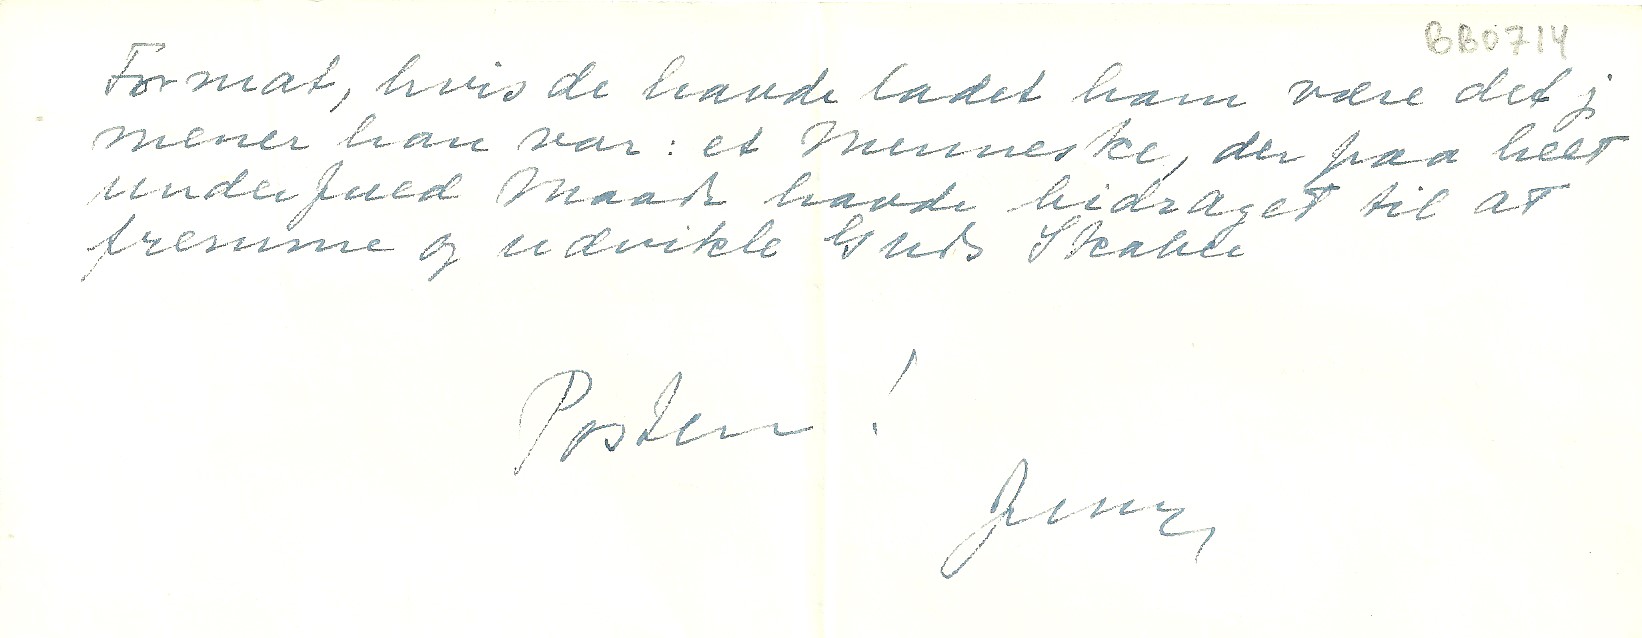 BB0714
Format, hvis de havde ladet ham være det j
mener han var: et Menneske, der paa helt
underfund Maade havde bidraget til at
fremme og udvikle Guds Skabe
Posten!
Jenny